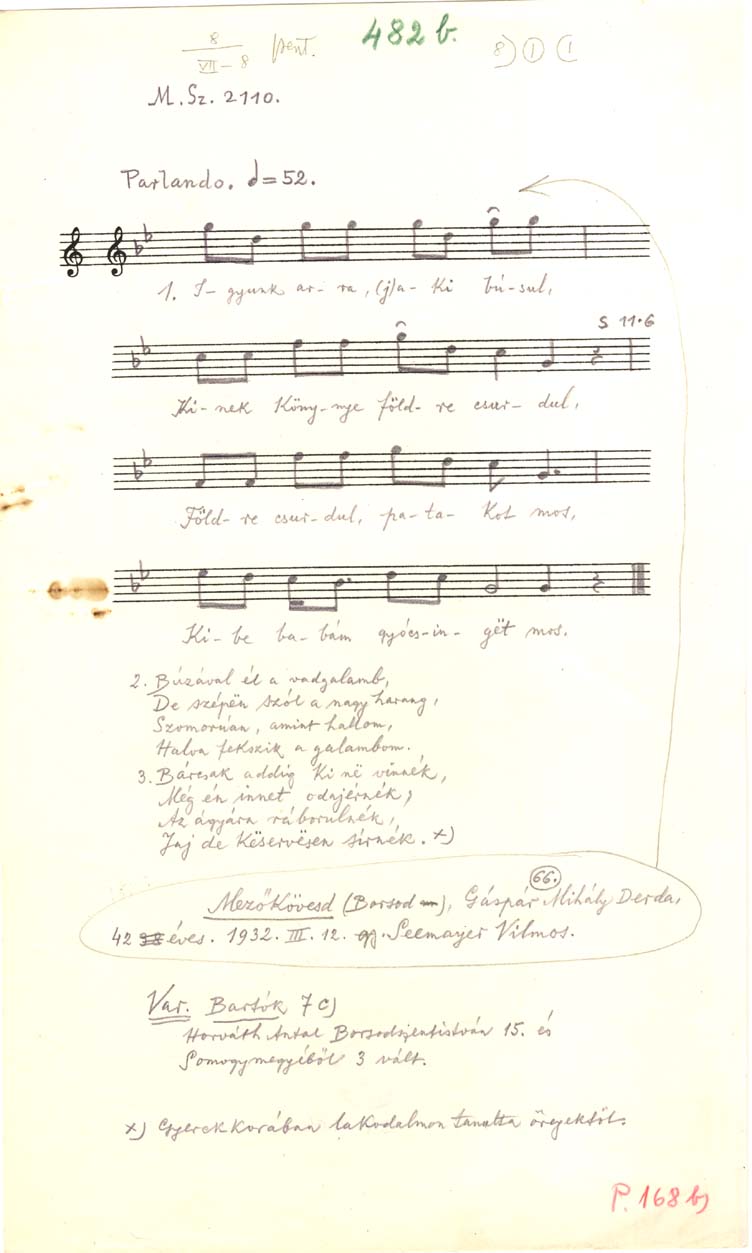 8
VII-8 pent.
482 b.
8) (1) (1
M. Sz. 2110.
Parlando. 𝅗𝅥=52.
1. I-gyunk ar-ra, (j)a-ki bú-sul,
S 11·6
Ki-nek köny-nye föld-re csur-dul,
Föld-re csur-dul, pa-ta-kot mos,
Ki-be ba-bám gyócs-in-gët mos.
2. Búzával él a vadgalamb,
De szépën szól a nagy harang,
Szomorúan, amint hallom,
Halva fekszik a galambom.
3. Bárcsak addig ki në vinnék,
Még én innet odajérnék,
Az ágyára ráborulnék,
Jaj de kësërvësen sírnék. x)
66.
Mezőkövesd (Borsod), Gáspár Mihály Derda,
42 éves. 1932. III. 12. gy. Seemayer Vilmos.
Var. Bartók 7 c)
Horváth Antal Borsodszentistván 15. és
Somogymegyéből 3 vált.
x) Gyerekkorában lakodalmon tanulta öregektől.
P. 168 b)